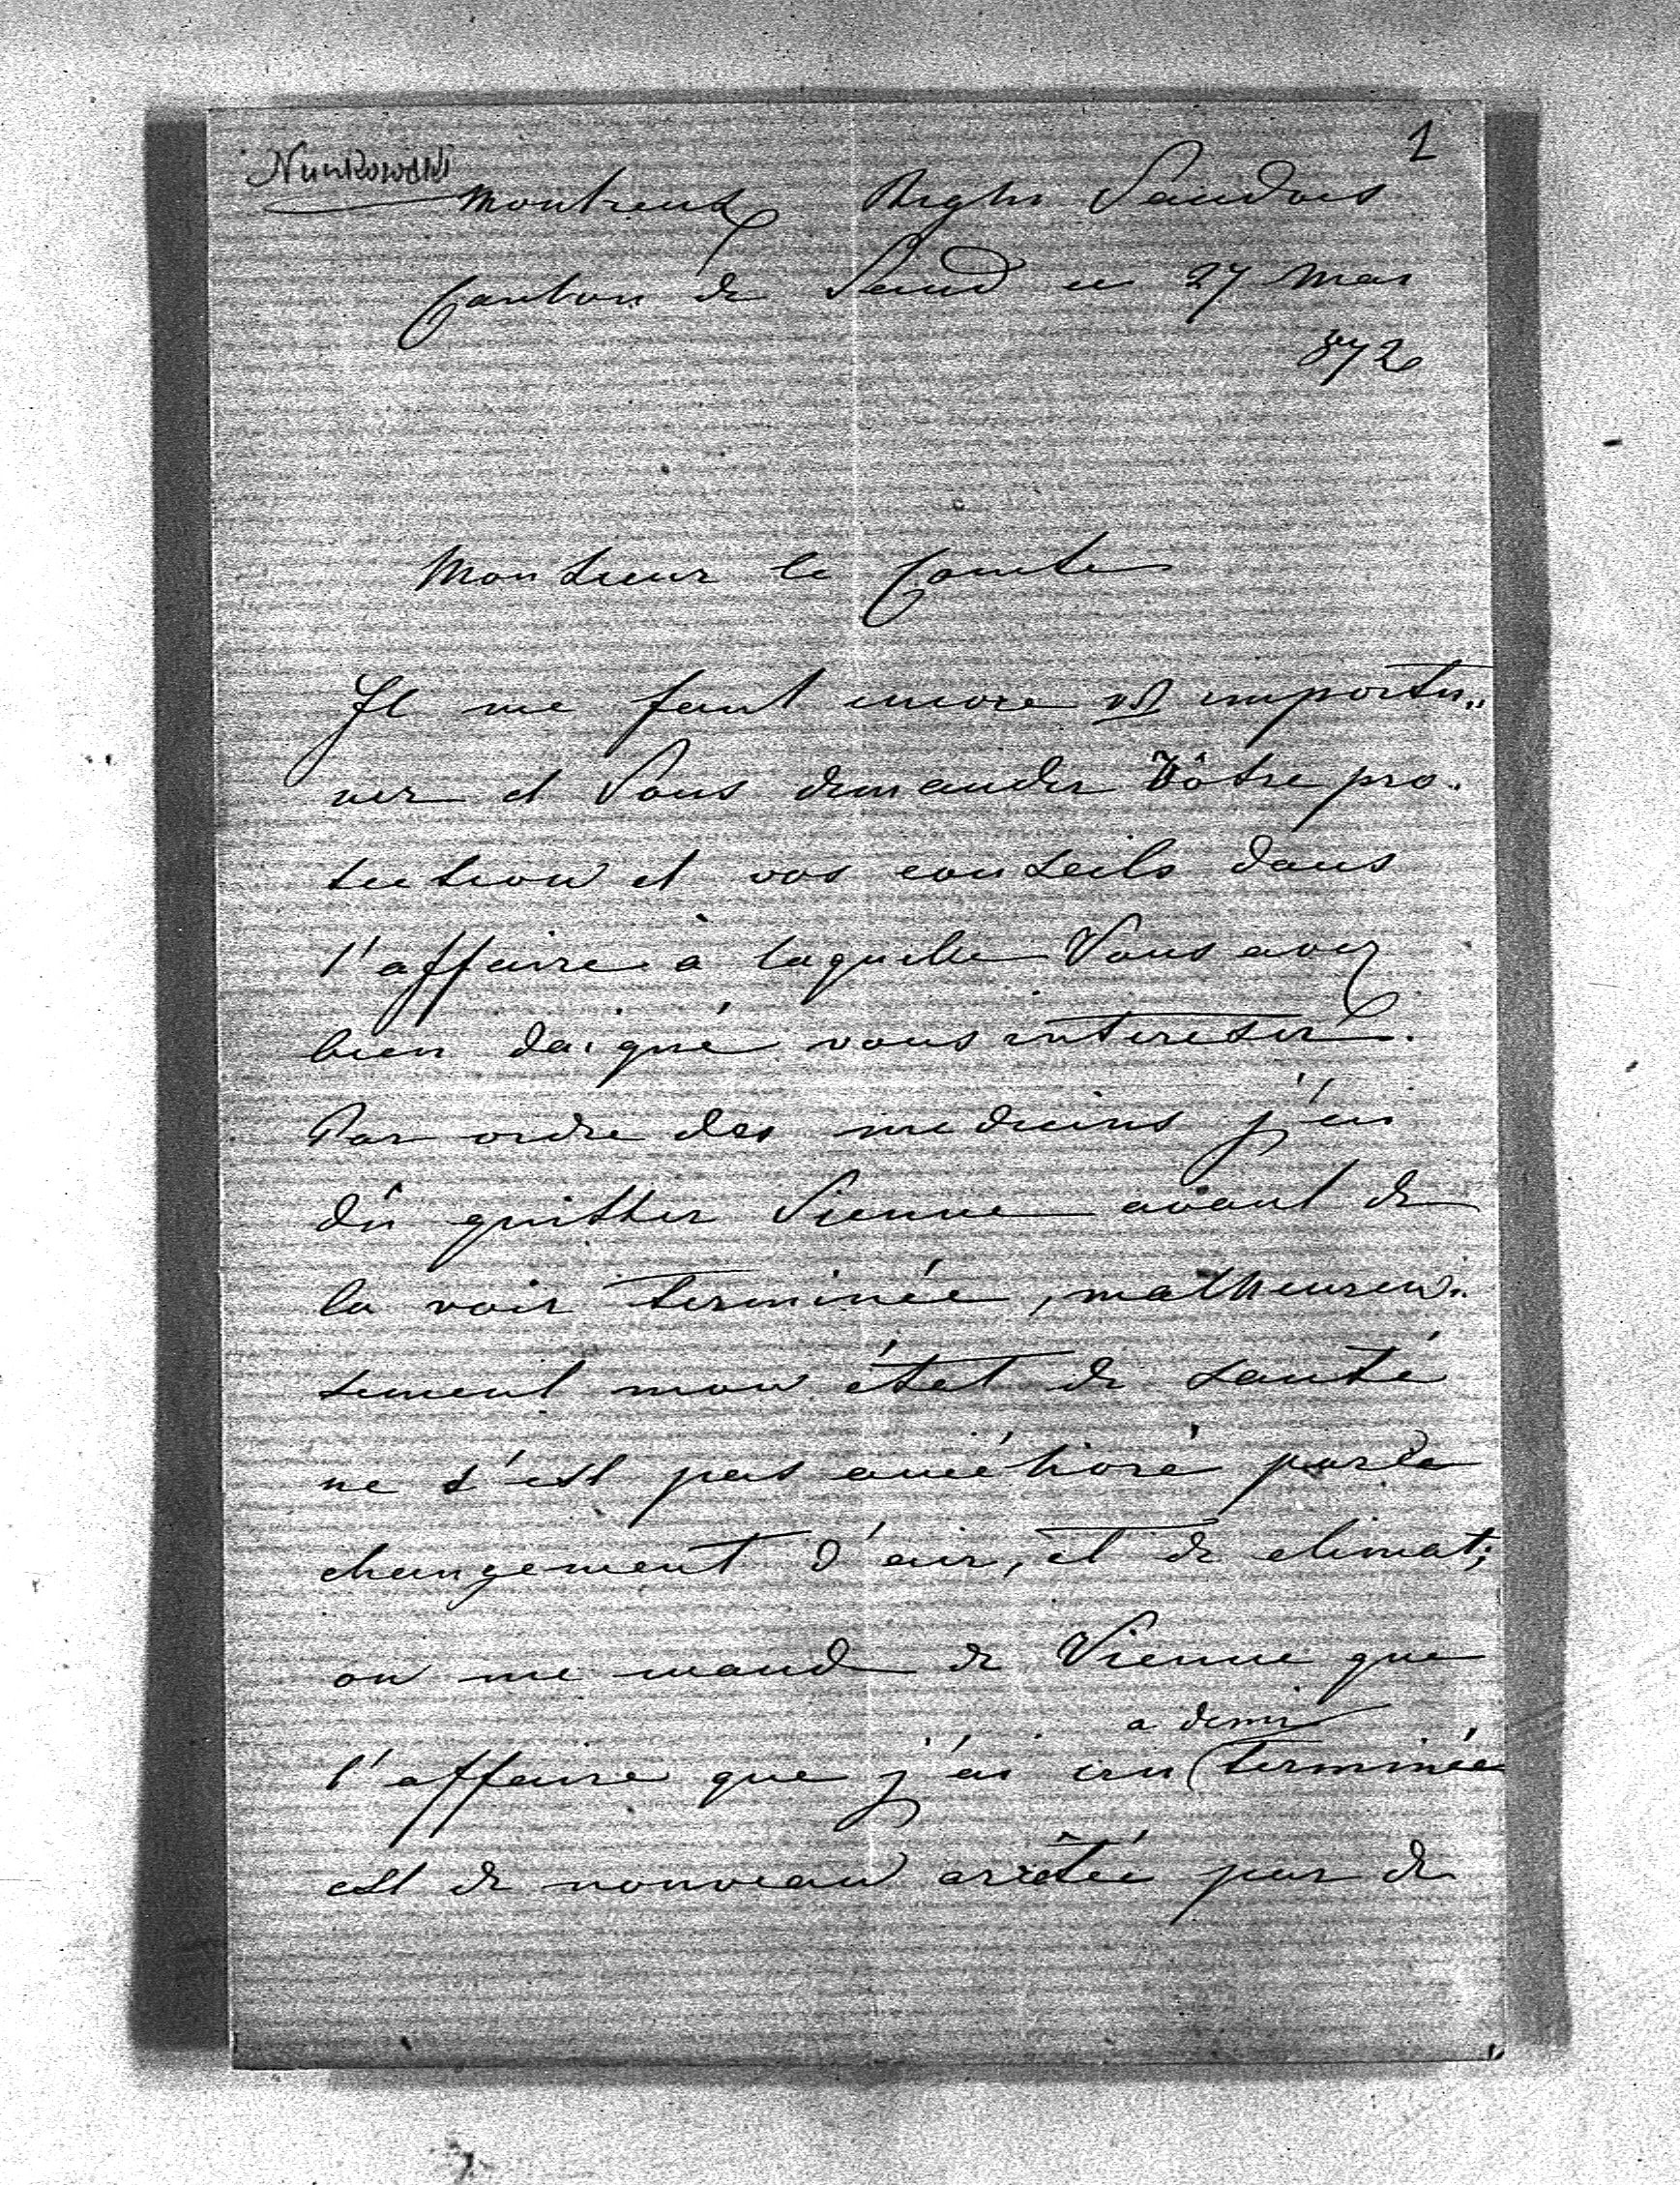 1
Montreux Righi Vaudois
Canton de Vaud ce 27 Mai
872
Monsieur le Comte
Il me faut encore importu„
ner et Vous demander Vôtre pro„
tection et vos conseils dans
l'affaire à laquelle Vous avez
bien daigné vous interesser.
Par ordre des medecins j'ai
dû quitter Vienne avant de
la voir terminée, malheureu„
sement mon état de santé
ne s'est pas amélioré par le
changement d'air, et de climat;
on me mande de Vienne que
a demi
l'affaire que j'ai cru terminée
est de nouveau arrêtée par de